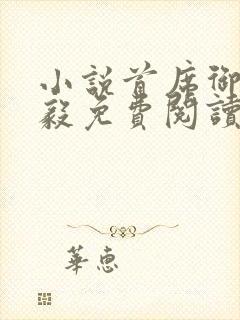 小說首席御
毅免費閱讀
華惠